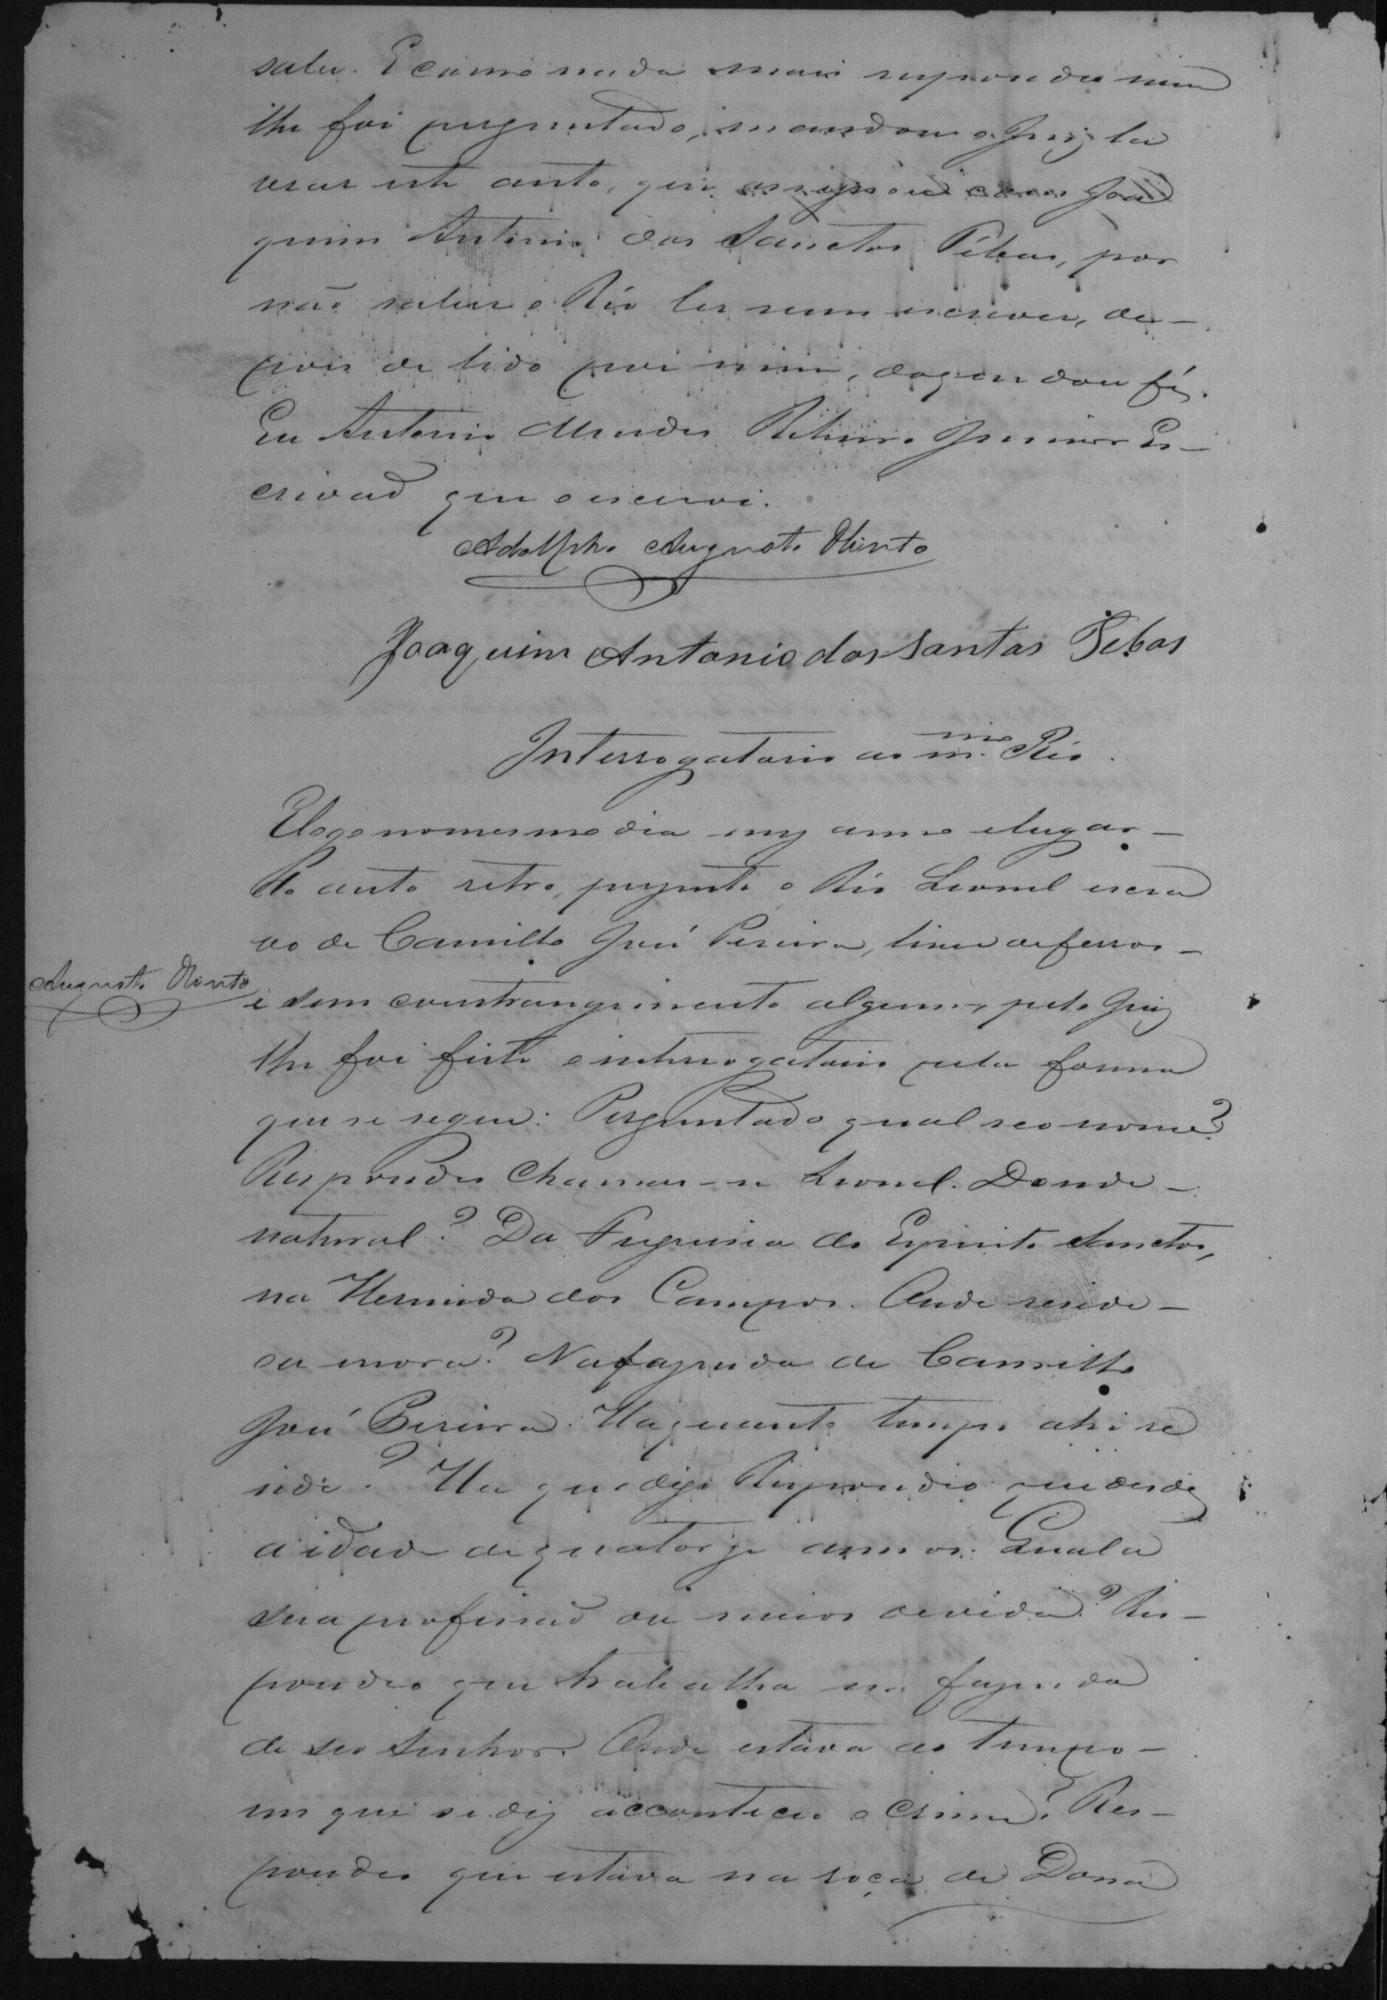 saber. E como nada mais respondeu nem
lhe foi perguntado, mandou o Juiz la
vrar este auto, que assignou com Joa
quim Antonio dos Sanctos Tébas, por
não saber o Réo ler nem escrever, de-
pois de lido por mim, do que dou fé.
Eu Antonio Mendes Ribeiro Junior Es-
crivaõ que o escrevi.
Adolpho Augusto Olinto
Joaquim Antonio dos Santos Tebas
Interrogatorio ao mmo Réo.
E logo no mesmo dia mez anno e lugar-
do auto retro, prezente o Réo Leonel escra
vo de Camillo José Pereira, livre de ferros-
Augusto Olinto
e sem constrangimento algum, pelo Juiz
lhe foi feito o interrogatorio pela forma
que se segue: Perguntado qual seo nome?
Respondeo chamar-se Leonel. Donde-
natural? Da Freguesia do Espirito Sancto,
na Hermida dos Campos. Onde reside-
ou mora? Na fazenda de Camillo
José Pereira. Ha quanto tempo ahi re
side? Ha que digo Respondeo que desde
a idade de quatorze annos. Qual a
sua profissaõ ou meios de vida? Res-
pondeo que trabalha na fazenda
de seo Senhor. Onde estava ao tempo-
em que se diz acconteceu o crime? Res-
pondeo que estava na roça de Dona